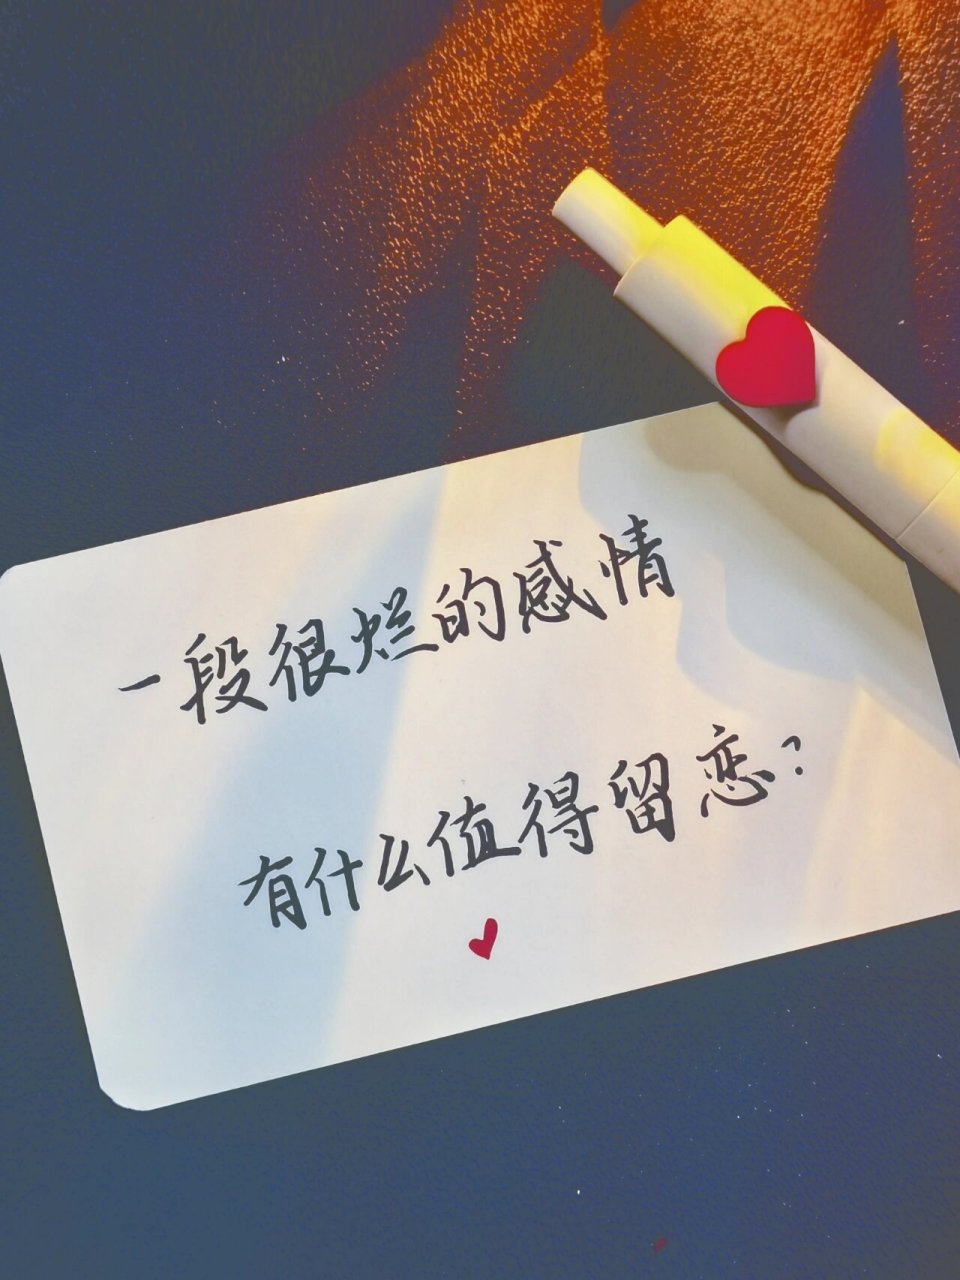 一段很烂的感情
有什么值得留恋?